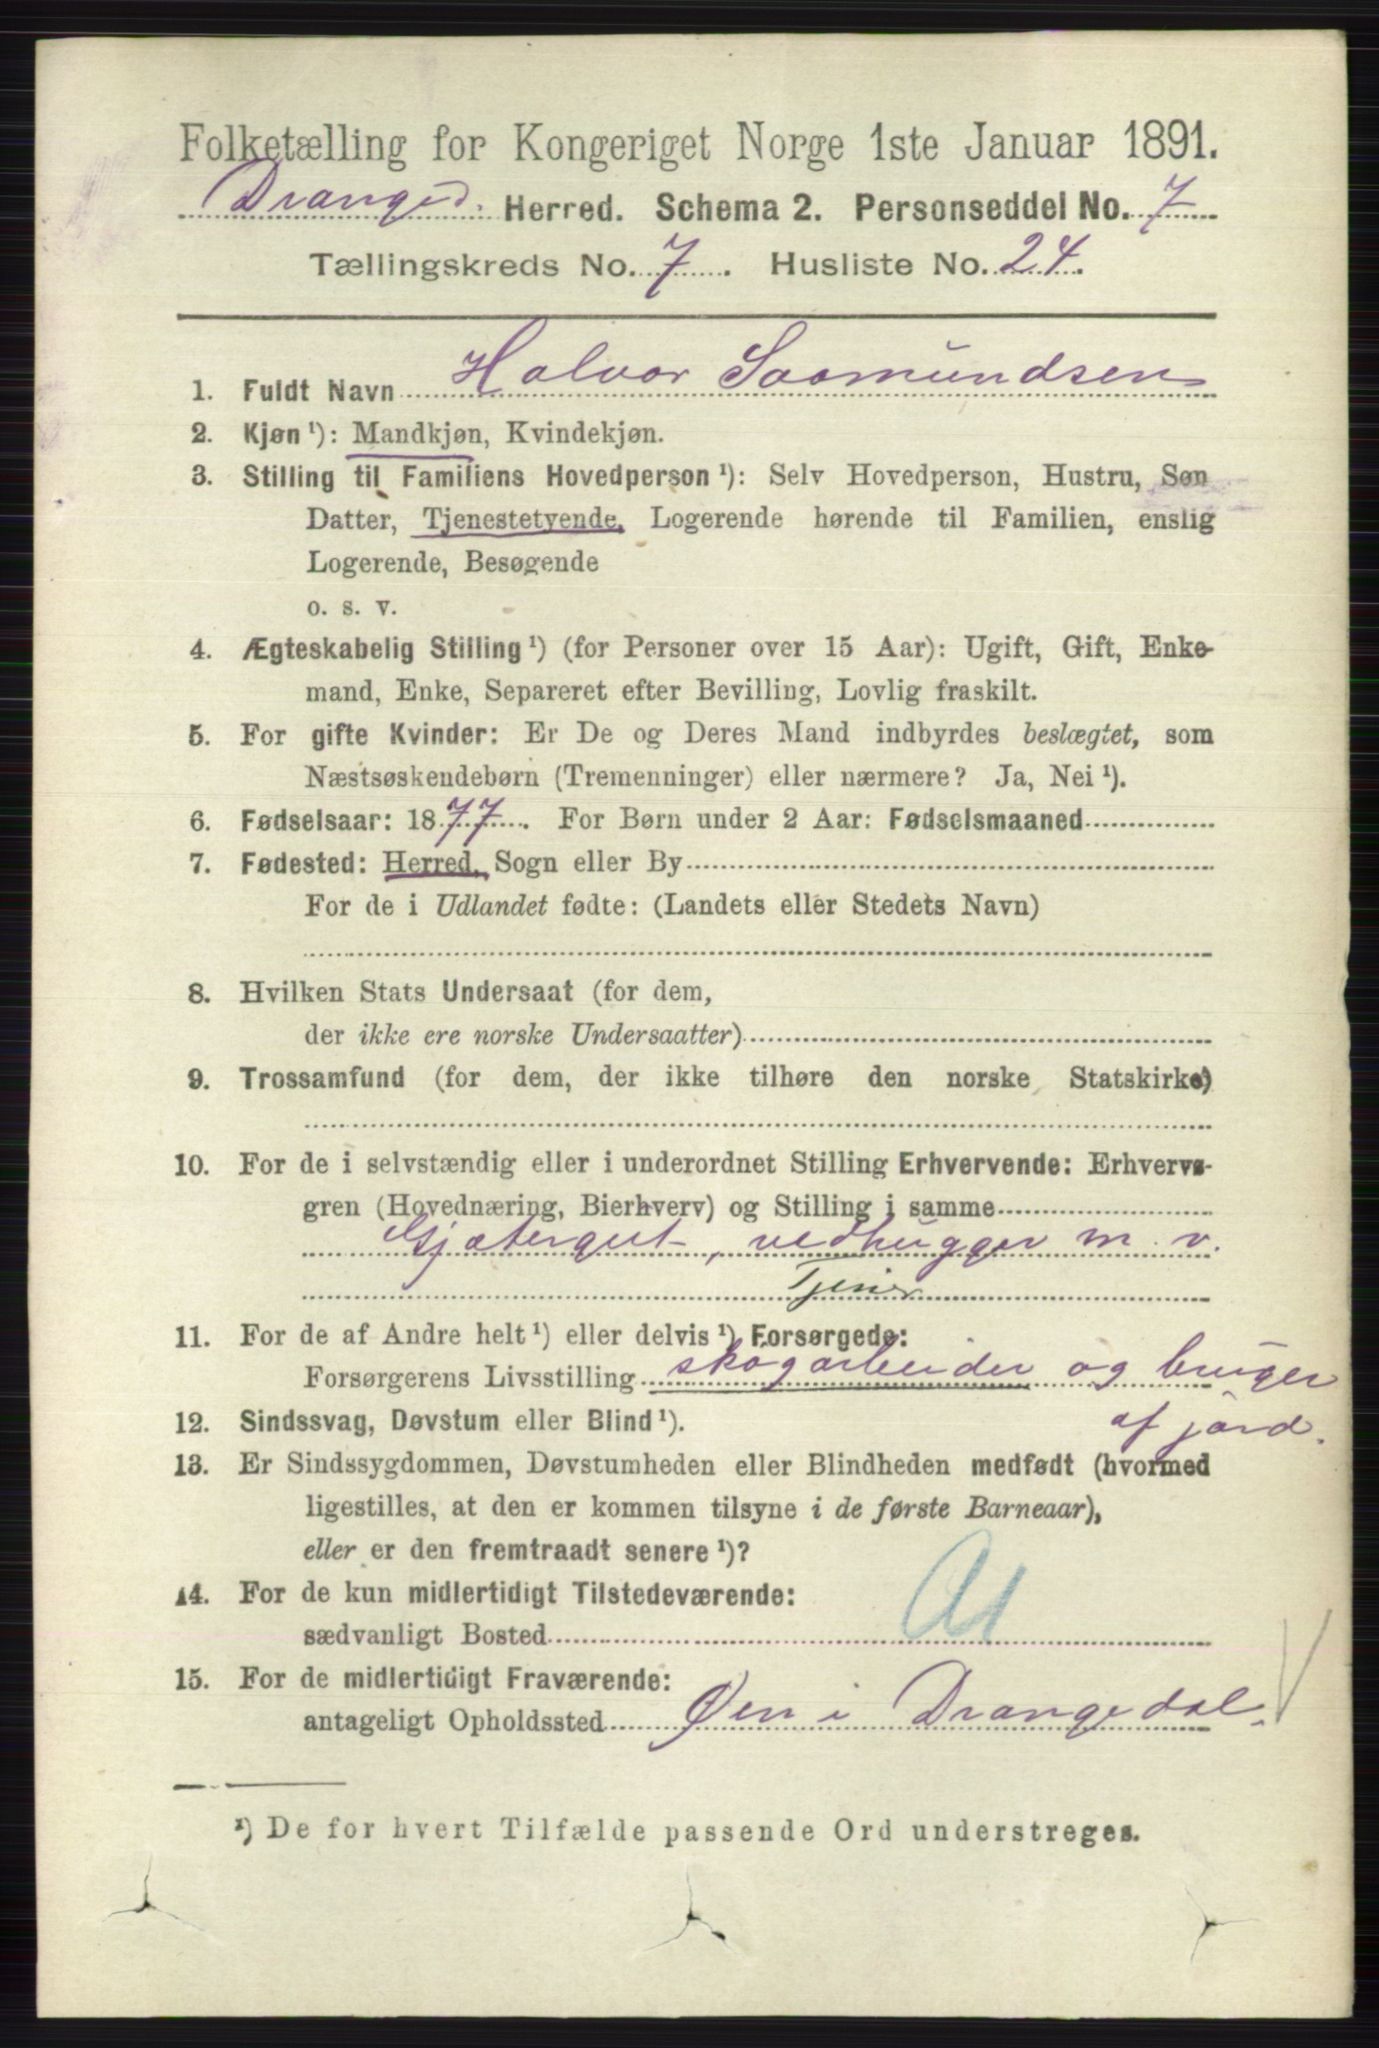 Folketælling for Kongeriget Norge 1ste Januar 1891.
Dranged. Herred. Schema 2. Personseddel No. 7
Tællingskreds No. 7. Husliste No. 24.
1. Fuldt Navn Halvor Saamundsen
2. Kjøn ¹): Mandkjøn, Kvindekjøn.
3. Stilling til Familiens Hovedperson ¹): Selv Hovedperson, Hustru, Søn
Datter, Tjenestetyende, Logerende hørende til Familien, enslig
Logerende, Besøgende
o. s. v.
4. Ægteskabelig Stilling ¹) (for Personer over 15 Aar): Ugift, Gift, Enke-
mand, Enke, Separeret efter Bevilling, Lovlig fraskilt.
5. For gifte Kvinder: Er De og Deres Mand indbyrdes beslægtet, som
Næstsøskendebørn (Tremenninger) eller nærmere? Ja, Nei ¹).
6. Fødselsaar: 1877. For Børn under 2 Aar: Fødselsmaaned
7. Fødested: Herred, Sogn eller By
For de i Udlandet fødte: (Landets eller Stedets Navn)
8. Hvilken Stats Undersaat (for dem,
der ikke ere norske Undersaatter)
9. Trossamfund (for dem, der ikke tilhøre den norske Statskirke)
10. For de i selvstændig eller i underordnet Stilling Erhvervende: Erhvervs-
gren (Hovednæring, Bierhverv) og Stilling i samme
Gjætergut, vedhugger m. v.
Tjener
11. For de af Andre helt ¹) eller delvis ¹) Forsørgede:
Forsørgerens Livsstilling skogarbeider og bruger
12. Sindssvag, Døvstum eller Blind ¹). af jord.
13. Er Sindssygdommen, Døvstumheden eller Blindheden medfødt (hvormed
ligestilles, at den er kommen tilsyne i de første Barneaar),
eller er den fremtraadt senere ¹)?
14. For de kun midlertidigt Tilstedeværende:
sædvanligt Bosted
15. For de midlertidigt Fraværende:
antageligt Opholdssted Øen i Drangedal.
¹) De for hvert Tilfælde passende Ord understreges.